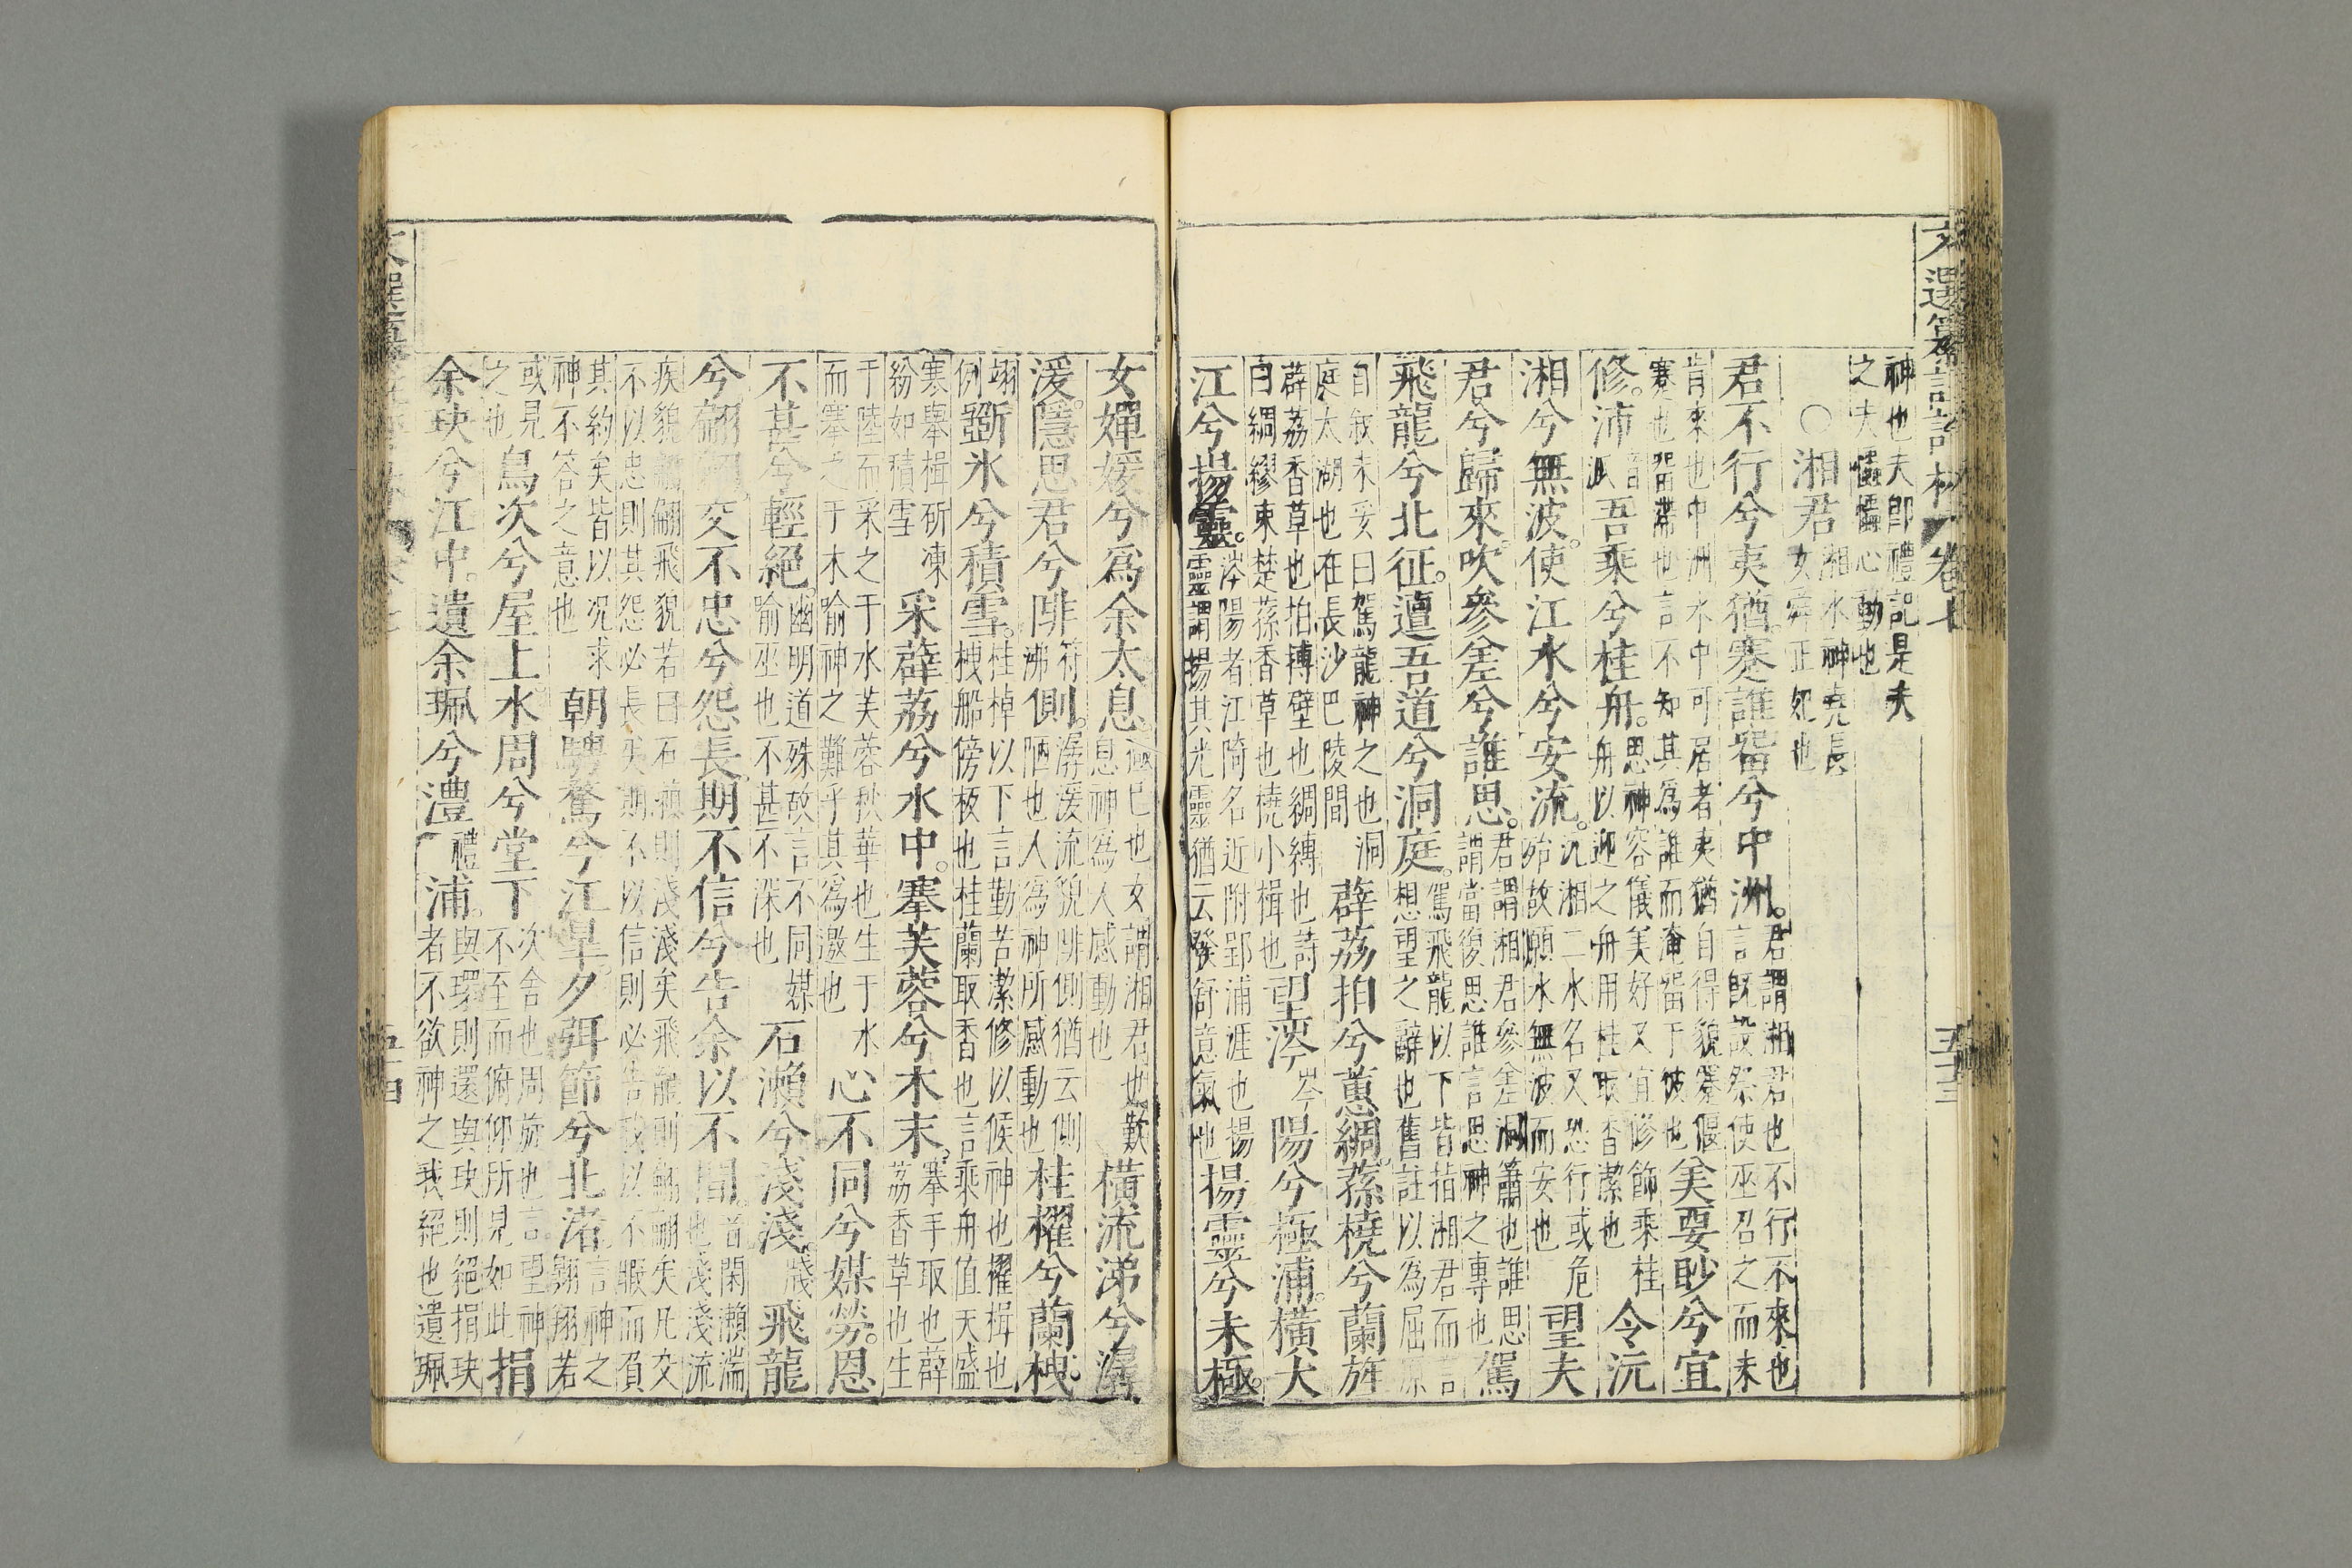 文選纂註評林 卷七 五十三
神也夫即禮記是夫
之夫𢥞𢥞心動也
〇湘君 湘水神堯長
女舜正妃也
君不行兮夷猶蹇誰留兮中洲。君謂湘君也不行不來也
言旣設祭使巫召之而未
肯來也中洲水中可居者夷猶自得貌蹇偃
蹇也留滯也言不知其為誰而淹留于彼也 美要眇兮宜
修。思神容儀美好又宜修飾乘桂
舟以迎之舟用桂取香潔也
沛 音
派 吾乘兮桂舟。令沅
湘兮無波。使江水兮安流。沅湘二水名又恐行或危
殆故願水無波而安也 望夫
君兮歸來。吹參差兮誰思。君謂湘君參差洞簫也誰思
謂當復思誰言思神之專也 駕
飛龍兮北征。邅吾道兮洞庭。駕飛龍以下皆指湘君而言
想望之辭也舊註以為屈原
自叙未妥曰駕龍神之也洞
庭太湖也在長沙巴陵間 薜荔拍兮蕙綢。蓀橈兮蘭旌
薜荔香草也拍搏壁也綢縛也詩
曰綢繆束楚蓀香草也橈小楫也 望涔 岑 陽兮極浦。橫大
江兮揚靈。涔陽者江隯名近附郢浦涯也揚
靈謂揚其光靈猶云發舒意氣也 揚靈兮未極。
女嬋媛兮爲余太息。極已也女謂湘君也歎
息神為人感動也 橫流涕兮潺
湲。隱思君兮陫 符
沸 側。潺湲流貌陫側猶云側
陋也人為神所感動也 桂櫂兮蘭枻。
翊
例 斲氷兮積雪。桂棹以下言勤苦潔修以候神也櫂楫也
枻船傍板也桂蘭取香也言乘舟值天盛
寒舉楫斫凍
紛如積雪 采薜荔兮水中。搴芙蓉兮木末。搴手取也薜
荔香草也生
于陸而采之于水芙蓉秋華也生于水
而搴之于木喻神之難乎其為邀也 心不同兮媒勞。恩
不甚兮輕絕。幽明道殊故言不同媒
喻巫也不甚不深也 石瀨兮淺淺。牋 飛龍
兮翩翩。交不忠兮怨長。期不信兮告余以不閒。音閑瀨湍
也淺淺流
疾貌翩翩飛貌若曰石瀨則淺淺矣飛龍則翩翩矣凡交
不以忠則其怨必長矣期不以信則必告我以不暇而負
其約矣皆以况求
神不答之意也 朝騁騖兮江皋。夕弭節兮北渚。言神之
翱翔若
或見
之也 鳥次兮屋上。水周兮堂下 次舍也周旋也言望神
不至而俯仰所見如此 捐
余玦兮江中。遺余珮兮澧 禮 浦。與環則還與玦則絕捐玦
者不欲神之我絕也遺珮